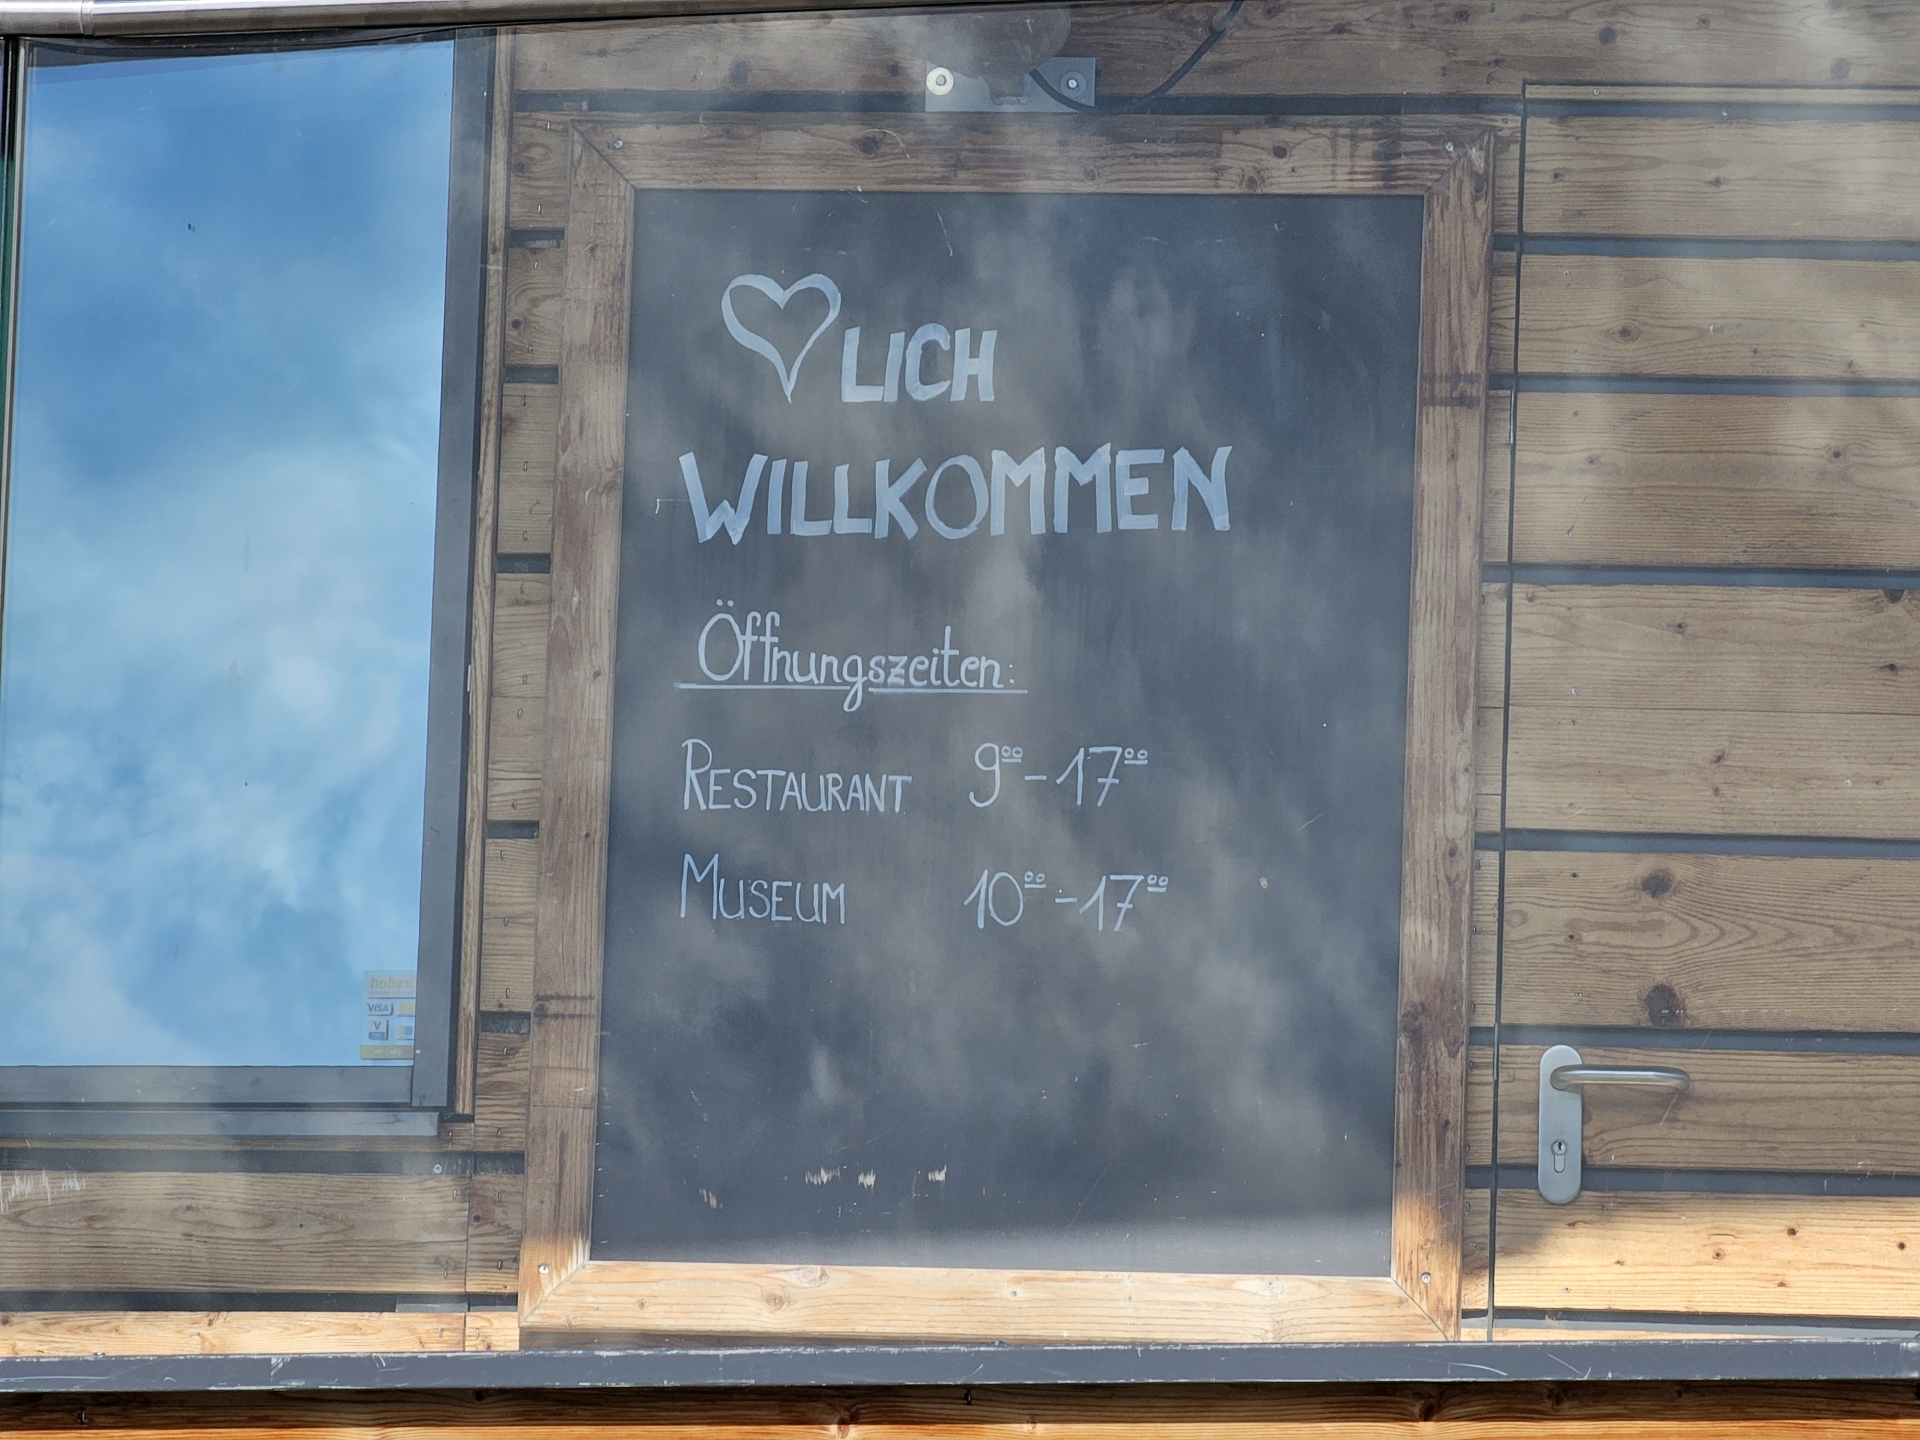 ♡LICH
WILLKOMMEN
Öffnungszeiten:
RESTAURANT 9⁰⁰-17⁰⁰
MUSEUM 10⁰⁰-17⁰⁰
hobex
VISA
V